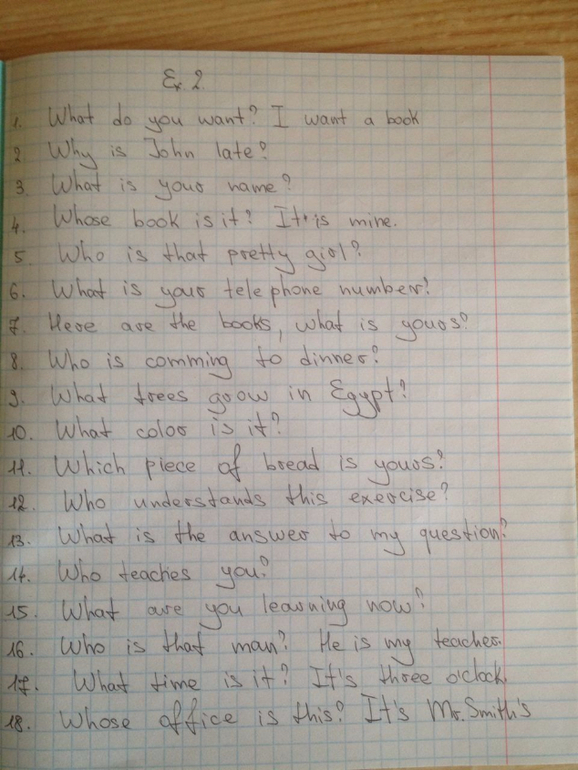 Ex. 2.
1. What do you want? I want a book
2. Why is John late?
3. What is your name?
4. Whose book is it? It is mine.
5. Who is that pretty girl?
6. What is your telephone number?
7. Here are the books, what is yours?
8. Who is comming to dinner?
9. What trees grow in Egypt?
10. What color is it?
11. Which piece of bread is yours?
12. Who understands this exercise?
13. What is the answer to my question?
14. Who teaches you?
15. What are you learning now?
16. Who is that man? He is my teacher.
17. What time is it? It's three o'clock.
18. Whose office is this? It's Mr. Smith's